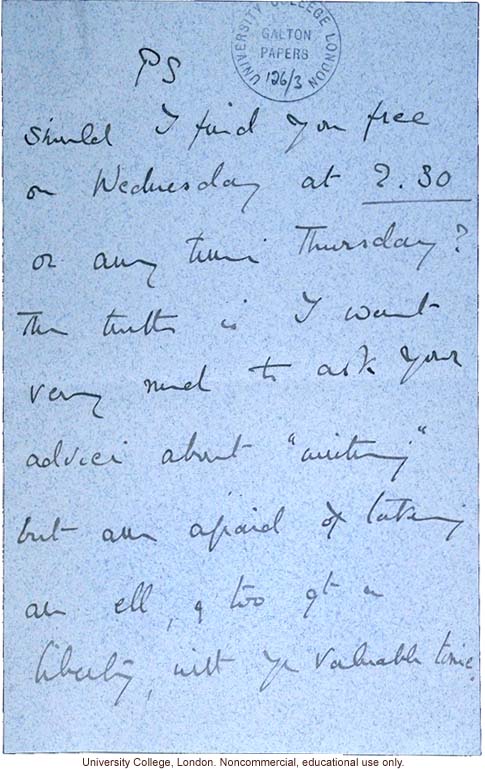 UNIVERSITY COLLEGE LONDON
GALTON
PAPERS
126/3
PS
Should I find you free
on Wednesday at 2.30
or any time Thursday?
The truth is I want
very much to ask your
advice about "writing"
but am afraid of taking
an ell, & too gt a
liberty, with yr valuable time.
University College, London. Noncommercial, educational use only.